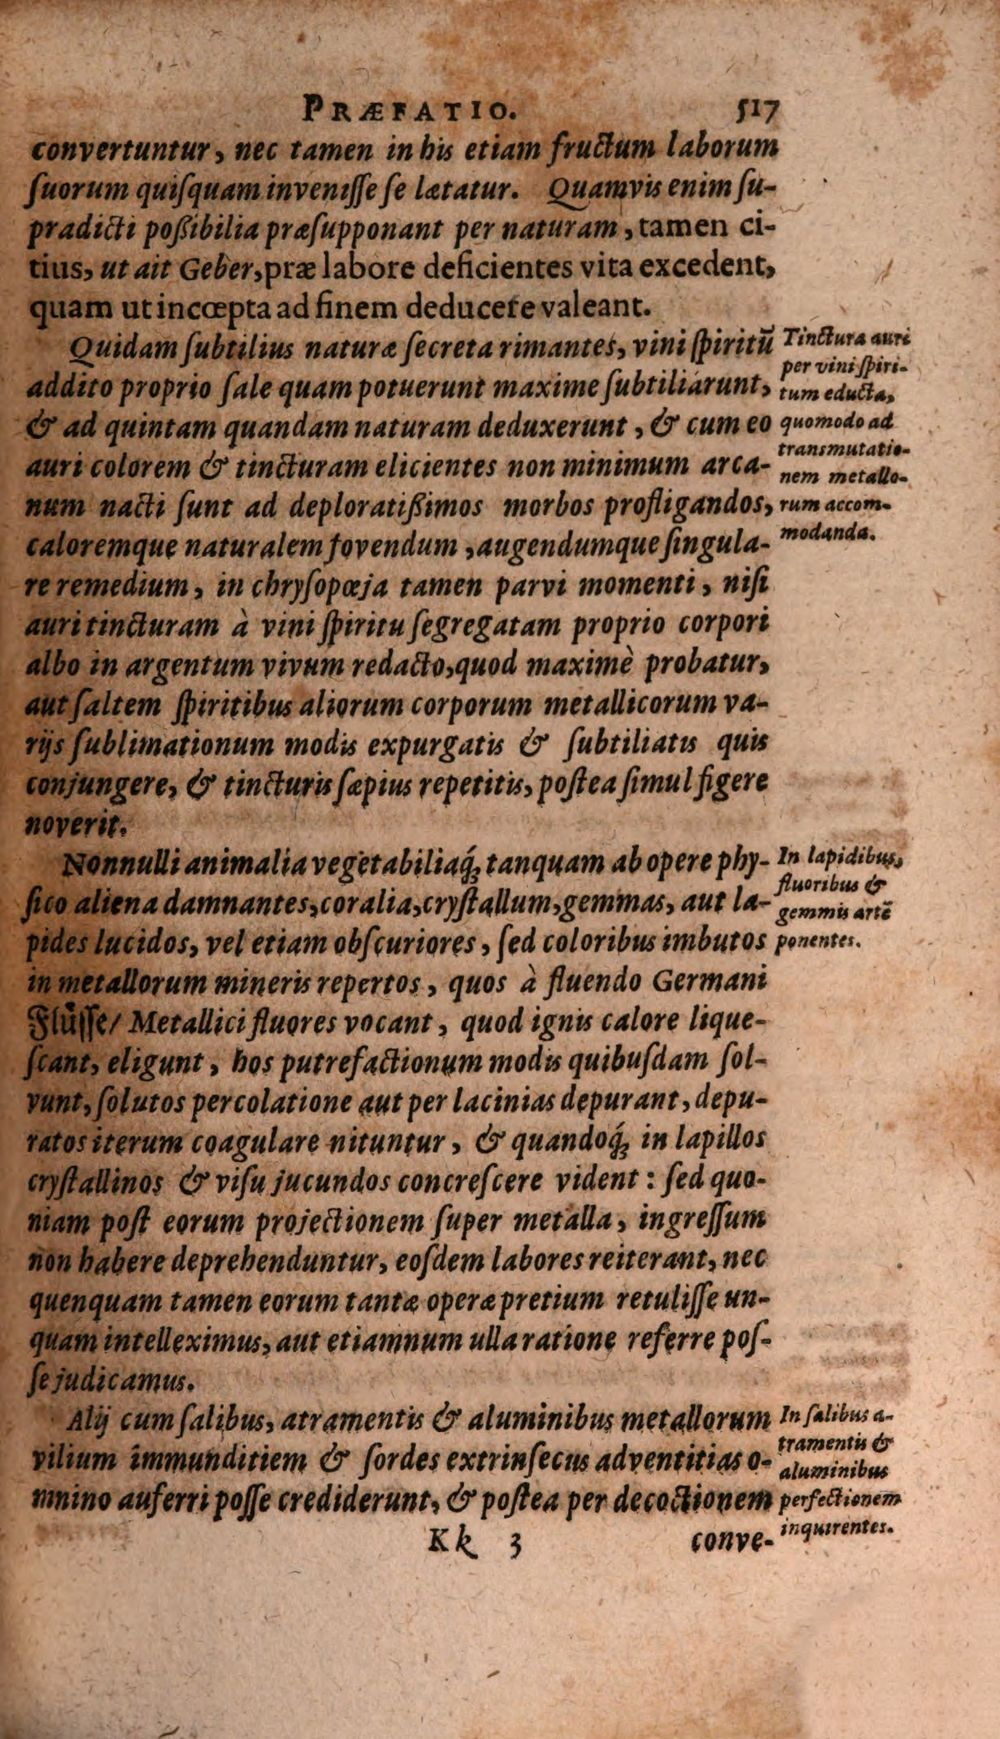 PRÆFATIO. 517
convertuntur, nec tamen in his etiam fructum laborum
ſuorum quiſquam inveniſſe ſe lætatur. Quamvis enim ſu-
pradicti poßibilia præſupponant per naturam, tamen ci-
tius, ut ait Geber, præ labore deficientes vita excedent,
quam ut incœpta ad finem deducere valeant.
Quidam ſubtilius naturæ ſecreta rimantes, vini ſpiritū
addito proprio ſale quam potuerunt maxime ſubtiliarunt,
& ad quintam quandam naturam deduxerunt, & cum eo
auri colorem & tincturam elicientes non minimum arca-
num nacti ſunt ad deploratißimos morbos profligandos,
caloremque naturalem fovendum, augendumque ſingula-
re remedium, in chryſopœja tamen parvi momenti, niſi
auri tincturam à vini ſpiritu ſegregatam proprio corpori
albo in argentum vivum redacto, quod maximè probatur,
aut ſaltem ſpiritibus aliorum corporum metallicorum va-
rijs ſublimationum modis expurgatis & ſubtiliatis quis
conjungere, & tincturis ſæpius repetitis, poſtea ſimul figere
noverit.
Tinctura auri
per vini ſpiri-
tum educta,
quomodo ad
transmutatio-
nem metallo-
rum accom-
modanda.
Nonnulli animalia vegetabiliaq́; tanquam ab opere phy-
ſico aliena damnantes, coralia, cryſtallum, gemmas, aut la-
pides lucidos, vel etiam obſcuriores, ſed coloribus imbutos
in metallorum mineris repertos, quos à fluendo Germani
Flüſſe/ Metallici fluores vocant, quod ignis calore lique-
ſcant, eligunt, hos putrefactionum modis quibuſdam ſol-
vunt, ſolutos percolatione aut per lacinias depurant, depu-
ratos iterum coagulare nituntur, & quandoq́; in lapillos
cryſtallinos & viſu jucundos concreſcere vident: ſed quo-
niam poſt eorum projectionem ſuper metalla, ingreſſum
non habere deprehenduntur, eoſdem labores reiterant, nec
quenquam tamen eorum tantæ operæ pretium retuliſſe un-
quam intelleximus, aut etiamnum ulla ratione referre poſ-
ſe judicamus.
In lapidibus,
fluoribus &
gemmis artē
ponentes.
Alij cum ſalibus, atramentis & aluminibus metallorum
vilium immunditiem & ſordes extrinſecus adventitias o-
mnino auferri poſſe crediderunt, & poſtea per decoctionem
In ſalibus a-
tramentis &
aluminibus
perfectionem
inquirentes.
Kk 3 conve-